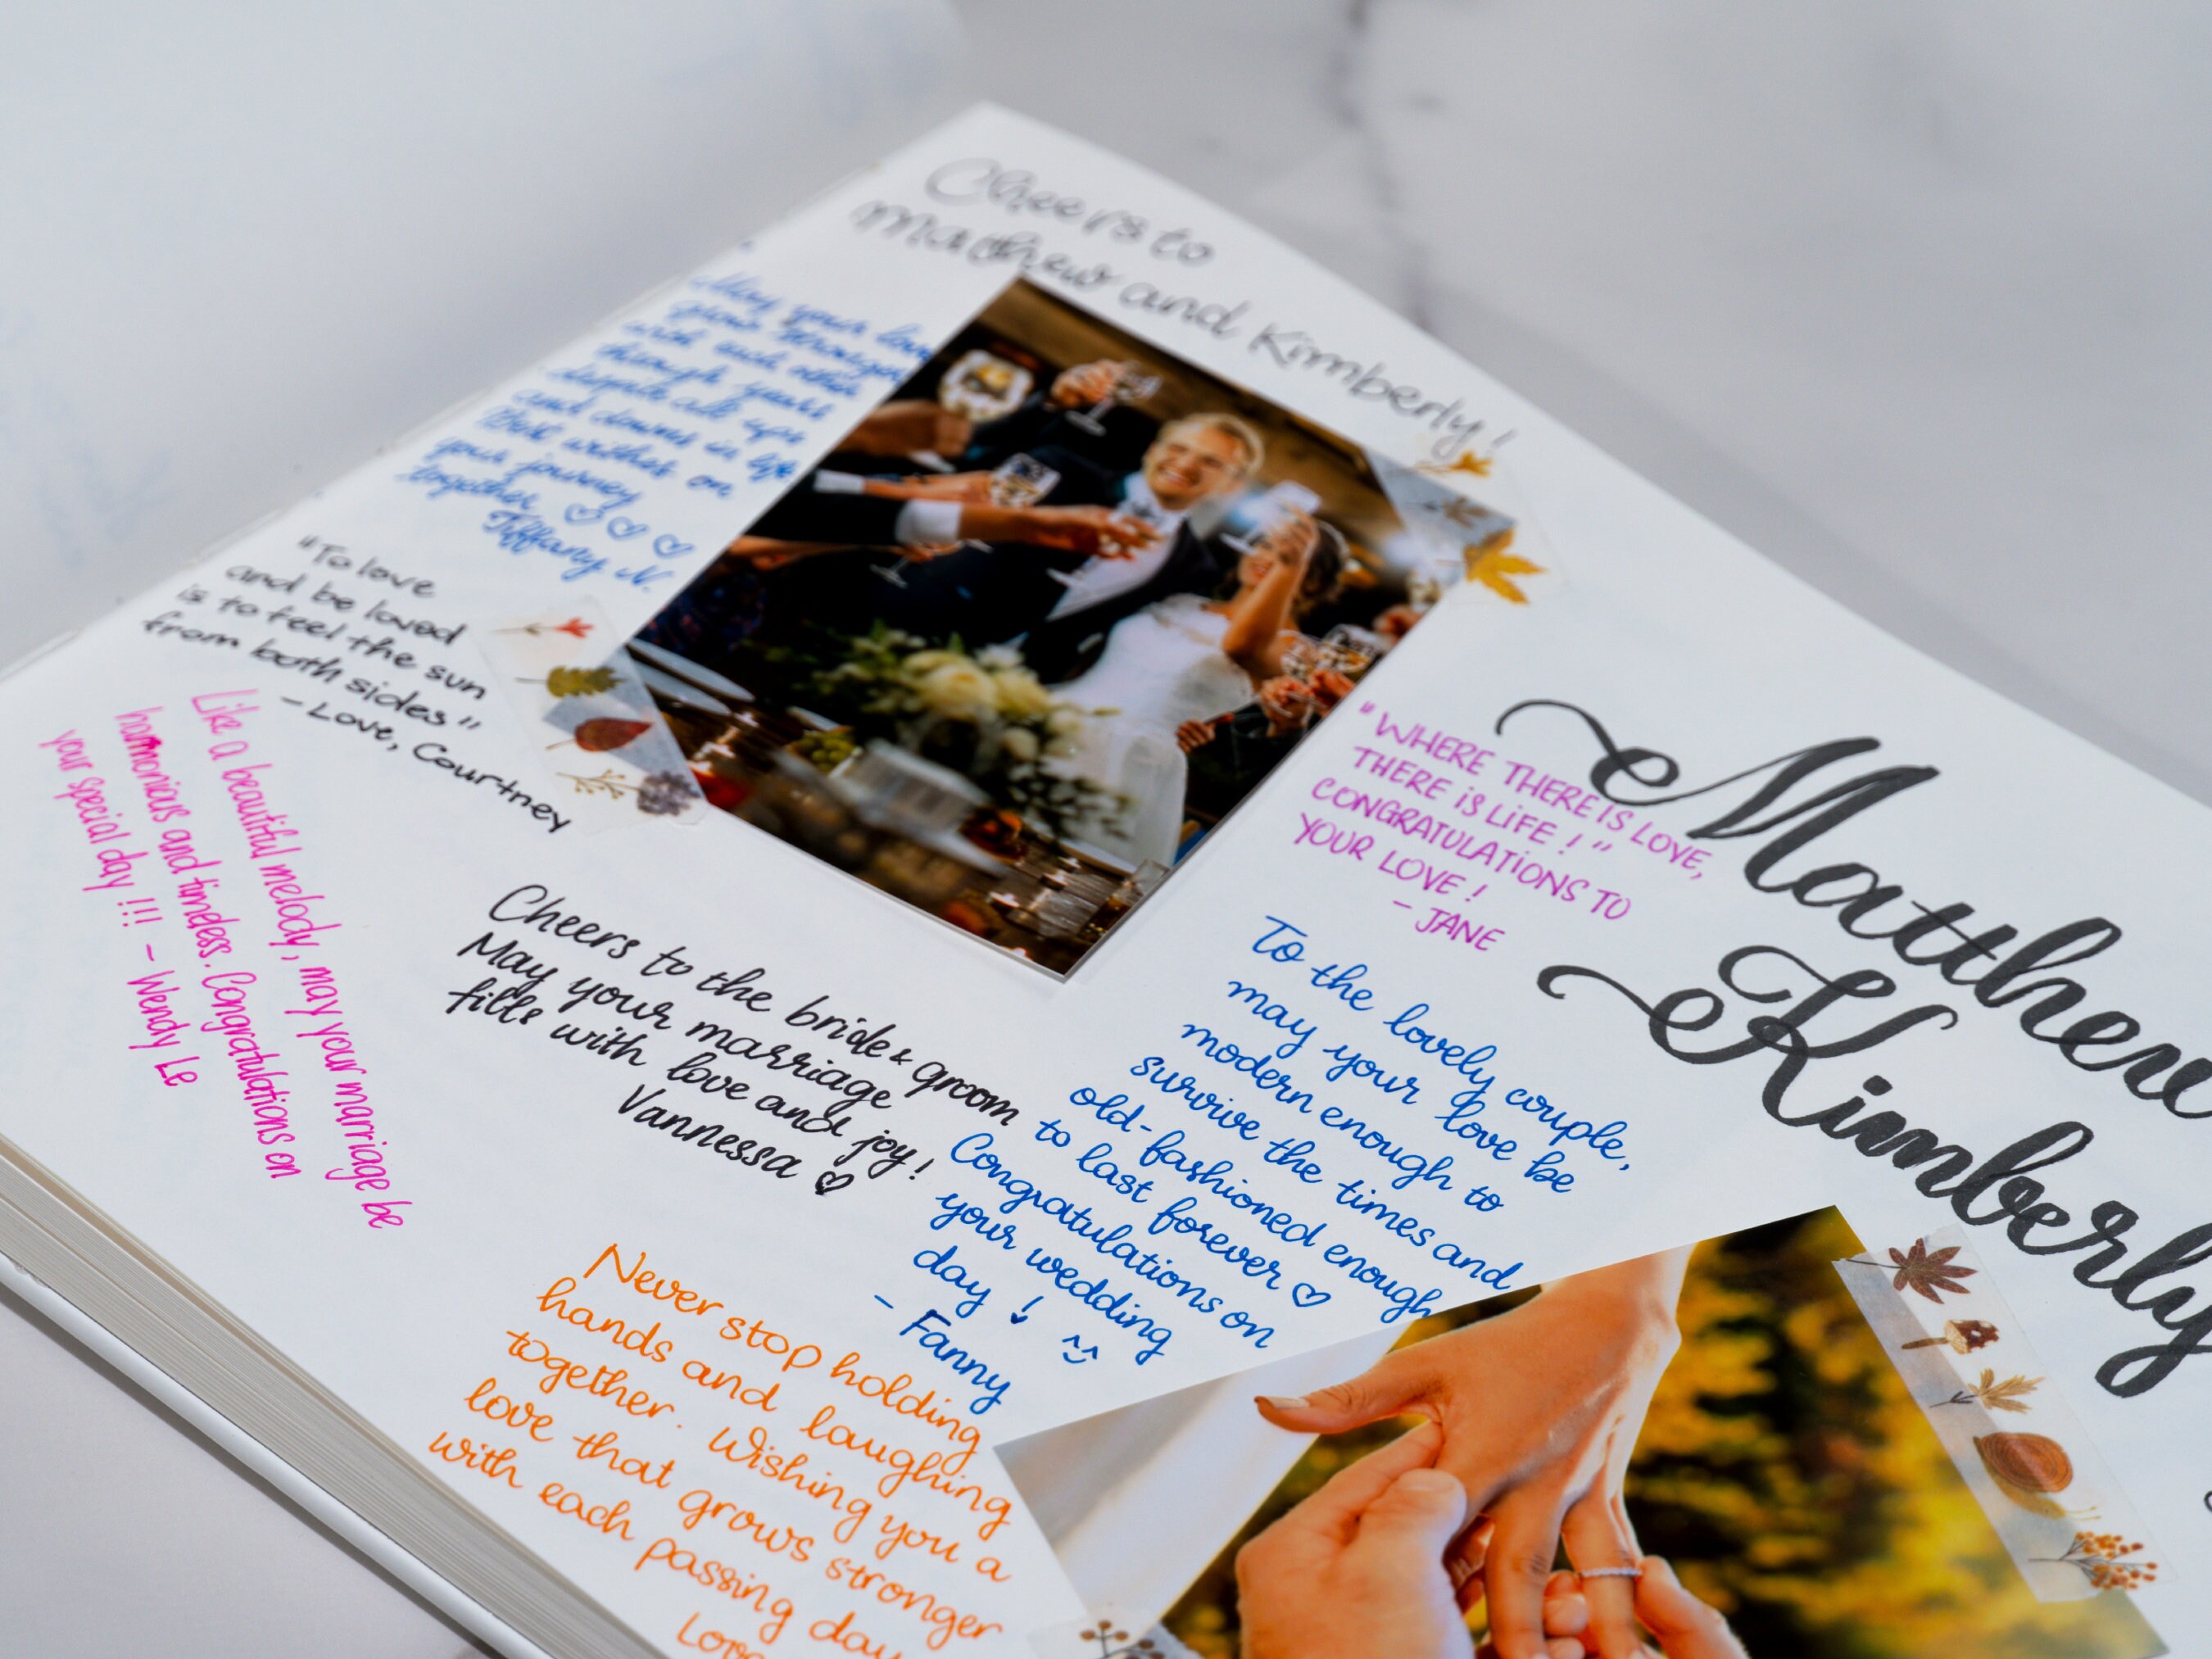 Cheers to
Matthew and Kimberly!
May your love
grow stronger
with each other
through years
despite all ups
and downs in life
Best wishes on
your journey
together ♡ ♡ ♡
Tiffany N.
"To love
and be loved
is to feel the sun
from both sides"
- Love, Courtney
Like a beautiful melody, may your marriage be
harmonious and timeless. Congratulations on
your special day !!! - Wendy Le
Cheers to the bride & groom
May your marriage
fills with love and joy!
Vannessa ♡
"WHERE THERE IS LOVE,
THERE iS LiFE !"
CONGRATULATIONS TO
YOUR LOVE !
- JANE
To the lovely couple,
may your love be
modern enough to
survive the times and
old-fashioned enough
to last forever ♡
Congratulations on
your wedding
day !
- Fanny
Never stop holding
hands and laughing
together. Wishing you a
love that grows stronger
with each passing day
Matthew
Kimberly